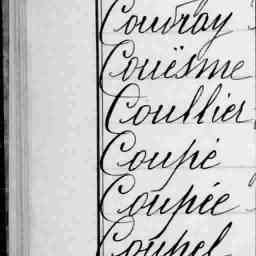 Couvray
Couësme
Coullier
Coupé
Coupée
Coupel